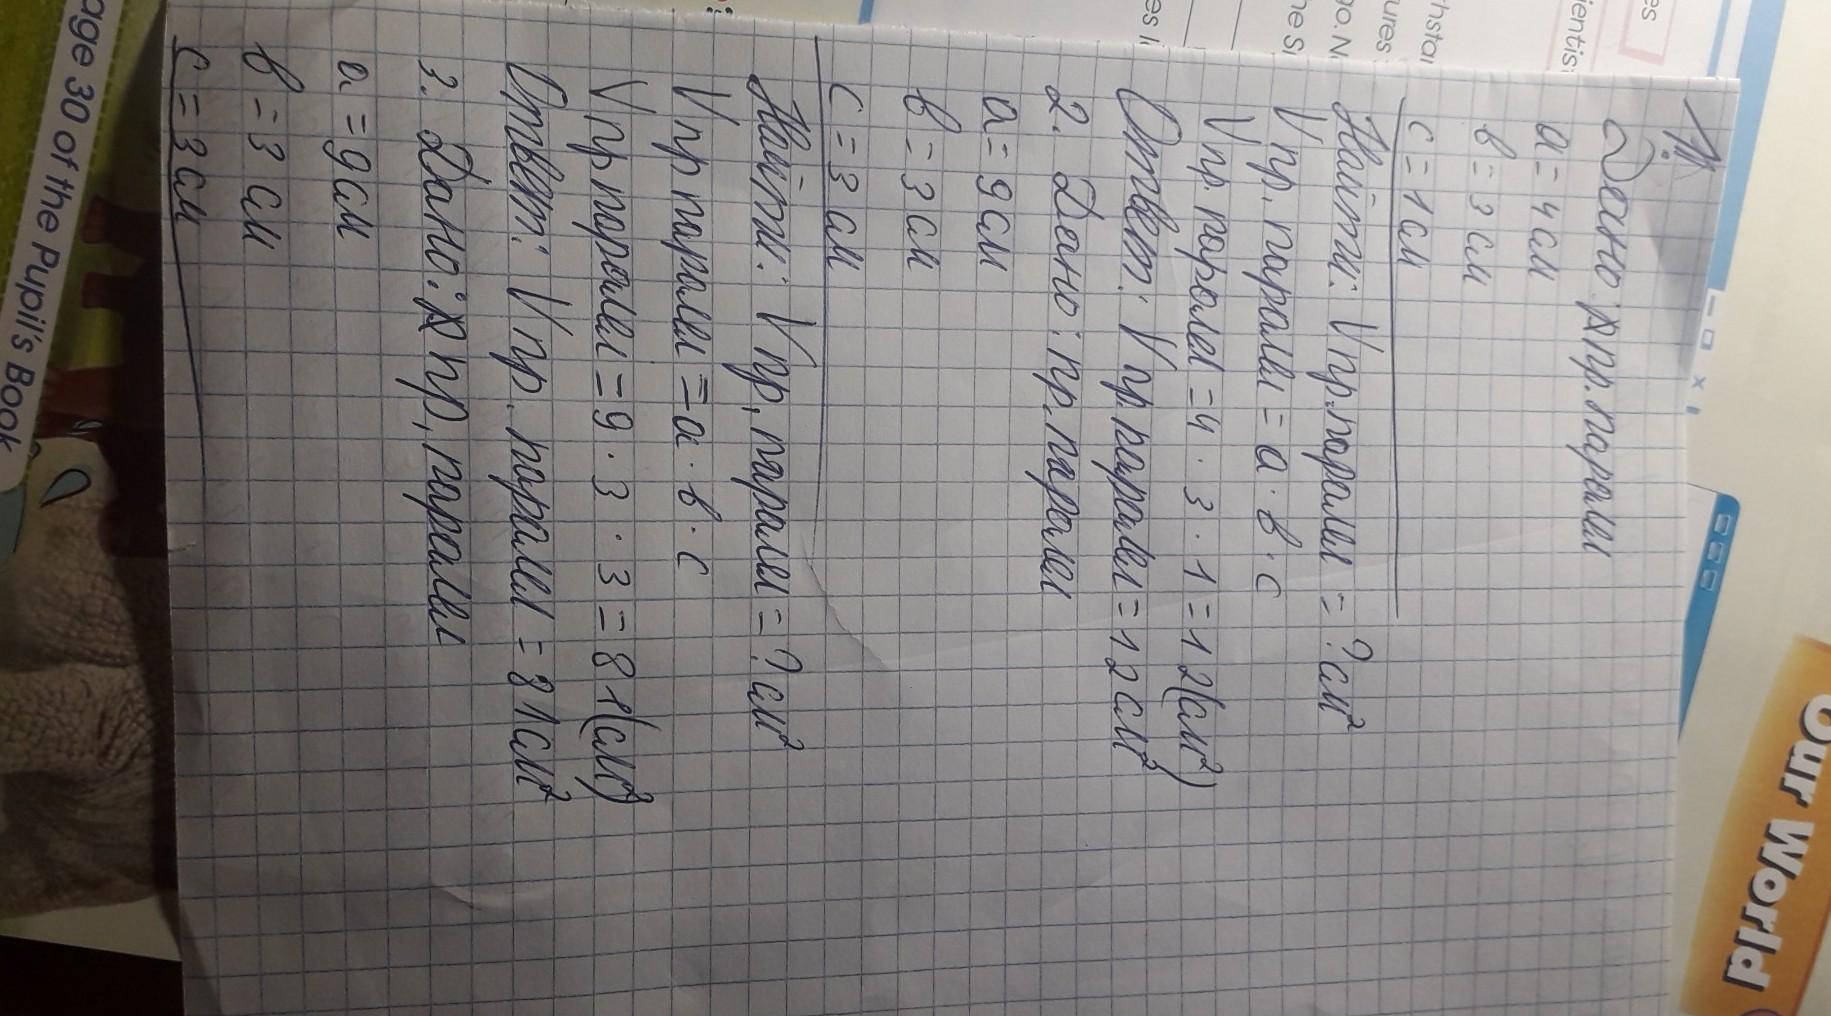 1.
Дано: пр. паралл
a = 4 см
в = 3 см
c = 1 см
Найти: V пр. паралл = ? см²
V пр. паралл = a · в · c
V пр. паралл = 4 · 3 · 1 = 12 (см²)
Ответ: V пр. паралл = 12 см²
2. Дано: пр. паралл
a = 9 см
в = 3 см
c = 3 см
Найти: V пр, паралл = ? см²
V пр паралл = a · в · c
V пр паралл = 9 · 3 · 3 = 81 (см²)
Ответ: V пр. паралл = 81 см²
3. Дано: пр, паралл
a = 9 см
в = 3 см
c = 3 см
Our World
age 30 of the Pupil's Book